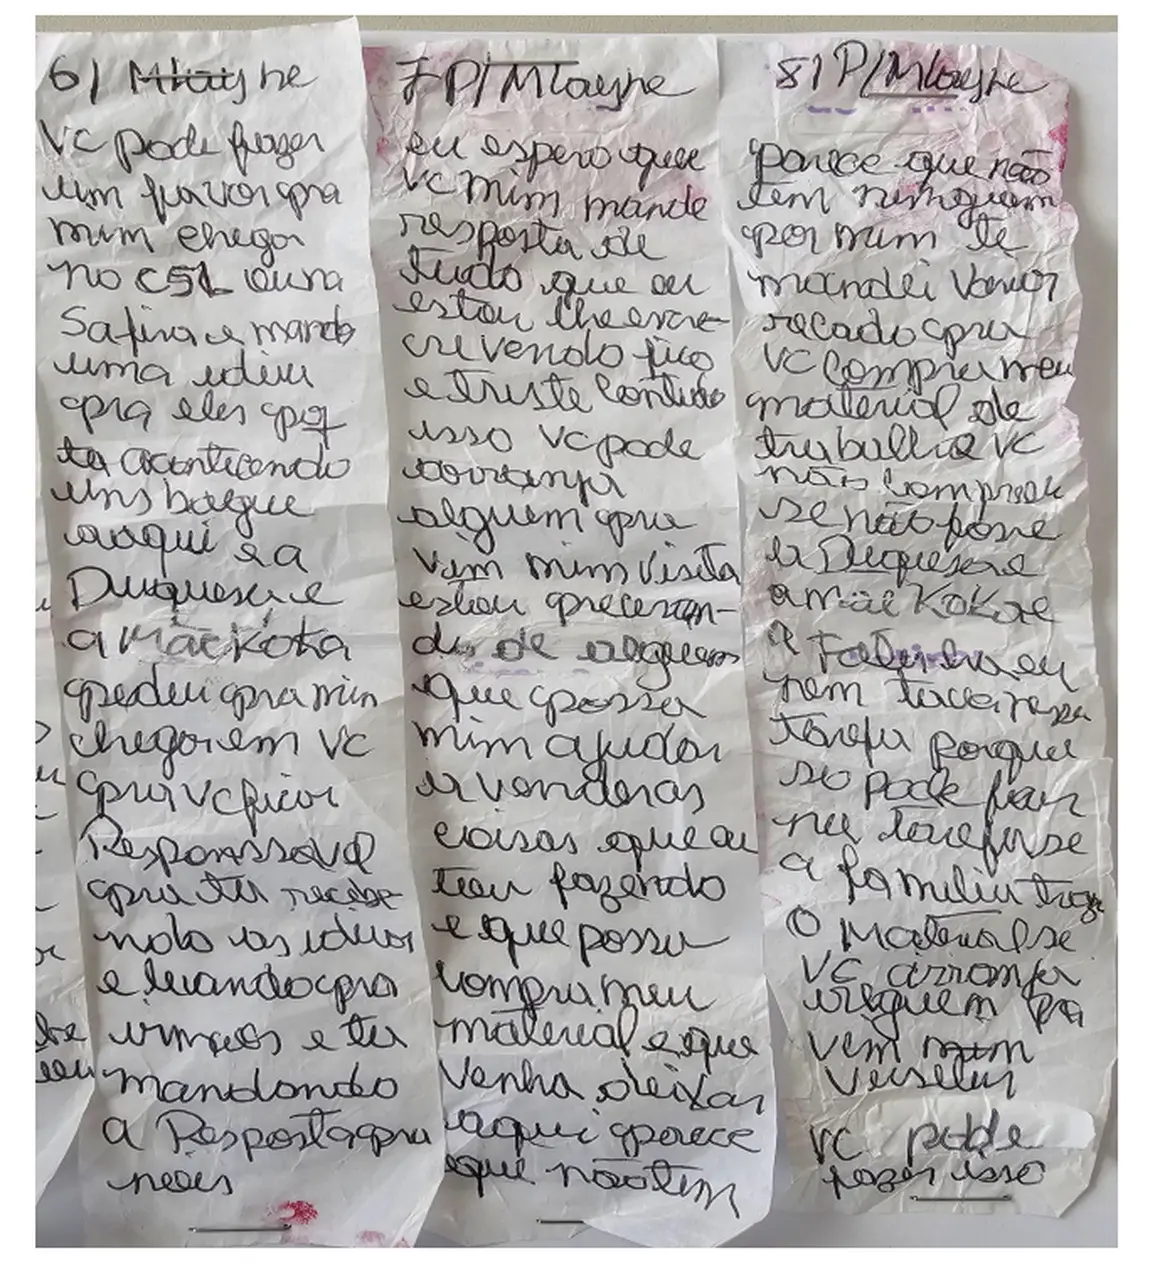 6) Mlayne
VC pode fazer
um favor pra
mim chegar
no C51 ou na
Safira e manda
uma ideia
pra eles pq
ta acontecendo
uns bague
aaqui e a
Duquesa e
a Mãe Koka
pediu pra mim
chegar em VC
pra vc ficar
Responssavel
pra ta recebe
ndo as ideias
e levando pra
irmãos e ta
mandando
a Resposta pra
nois
7 P/Mlayne
eu espero que
VC mim mande
resposta de
tudo que eu
estou lhe escre-
crevendo fico
e triste com tudo
isso VC pode
arranja
alguem pra
Vim mim visita
estou precesan-
do de alguem
que possa
mim ajudar
a vender as
coisas que eu
tou fazendo
e que possa
compra meu
material e que
Venha deixar
aqui parece
que não tem
8) P/Mlayne
parece que não
tem nimguem
por mim te
mandei Varios
recado pra
VC compra meu
material de
trabalho e VC
não comprou
se não fosse
a Duquesa e
a mãe Koka e
a
nem tava
tarefa porque
so pode ficar
na tarefa se
a familia traze
O Material se
VC arromja
alguem pra
Vem mim
VC pode
fazer isso